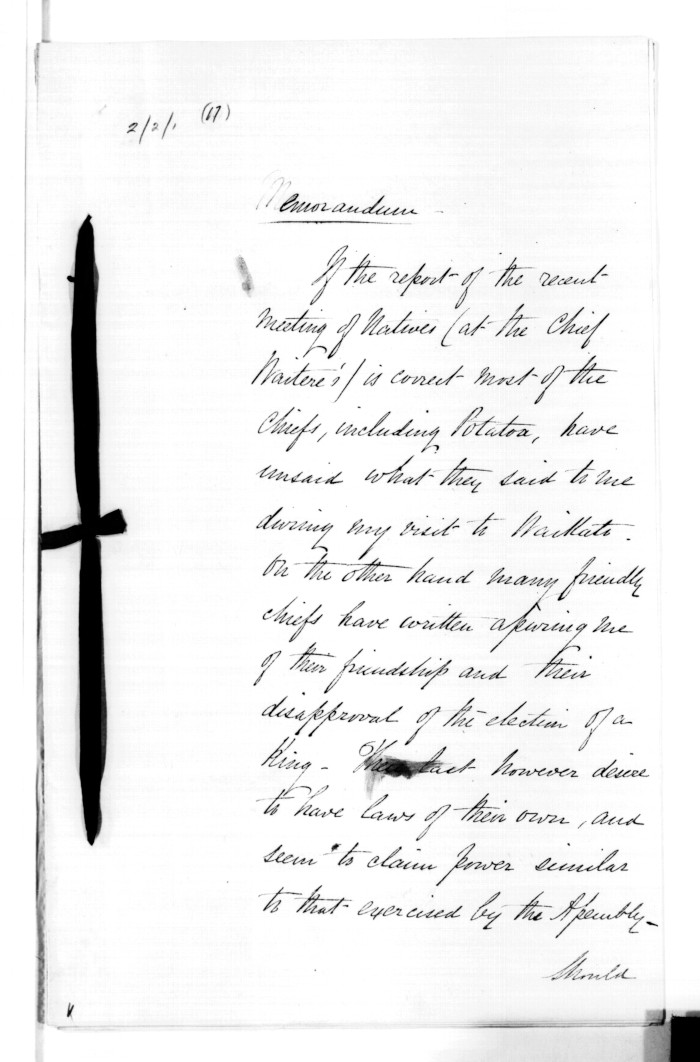 2/2/1 (17)
Memorandum
If the report of the recent
meeting of Natives (at the Chief
Waitere's) is correct most of the
Chiefs, including Potatoa, have
unsaid what they said to me
during my visit to Waikato.
On the other hand many friendly
chiefs have written assuring me
of their friendship and their
disapproval of the election of a
King - These last however desire
to have laws of their own, and
seem to claim power similar
to that exercised by the Assembly -
Should